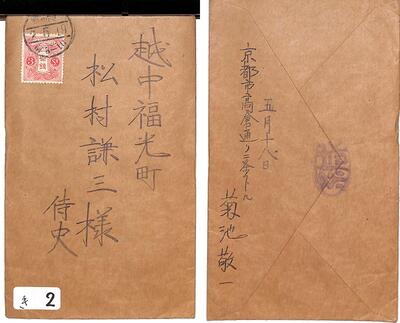 越中福光町
松村謙三様
侍史
き 2
五月十八日
京都市高倉通り二条下ル
菊池敬一